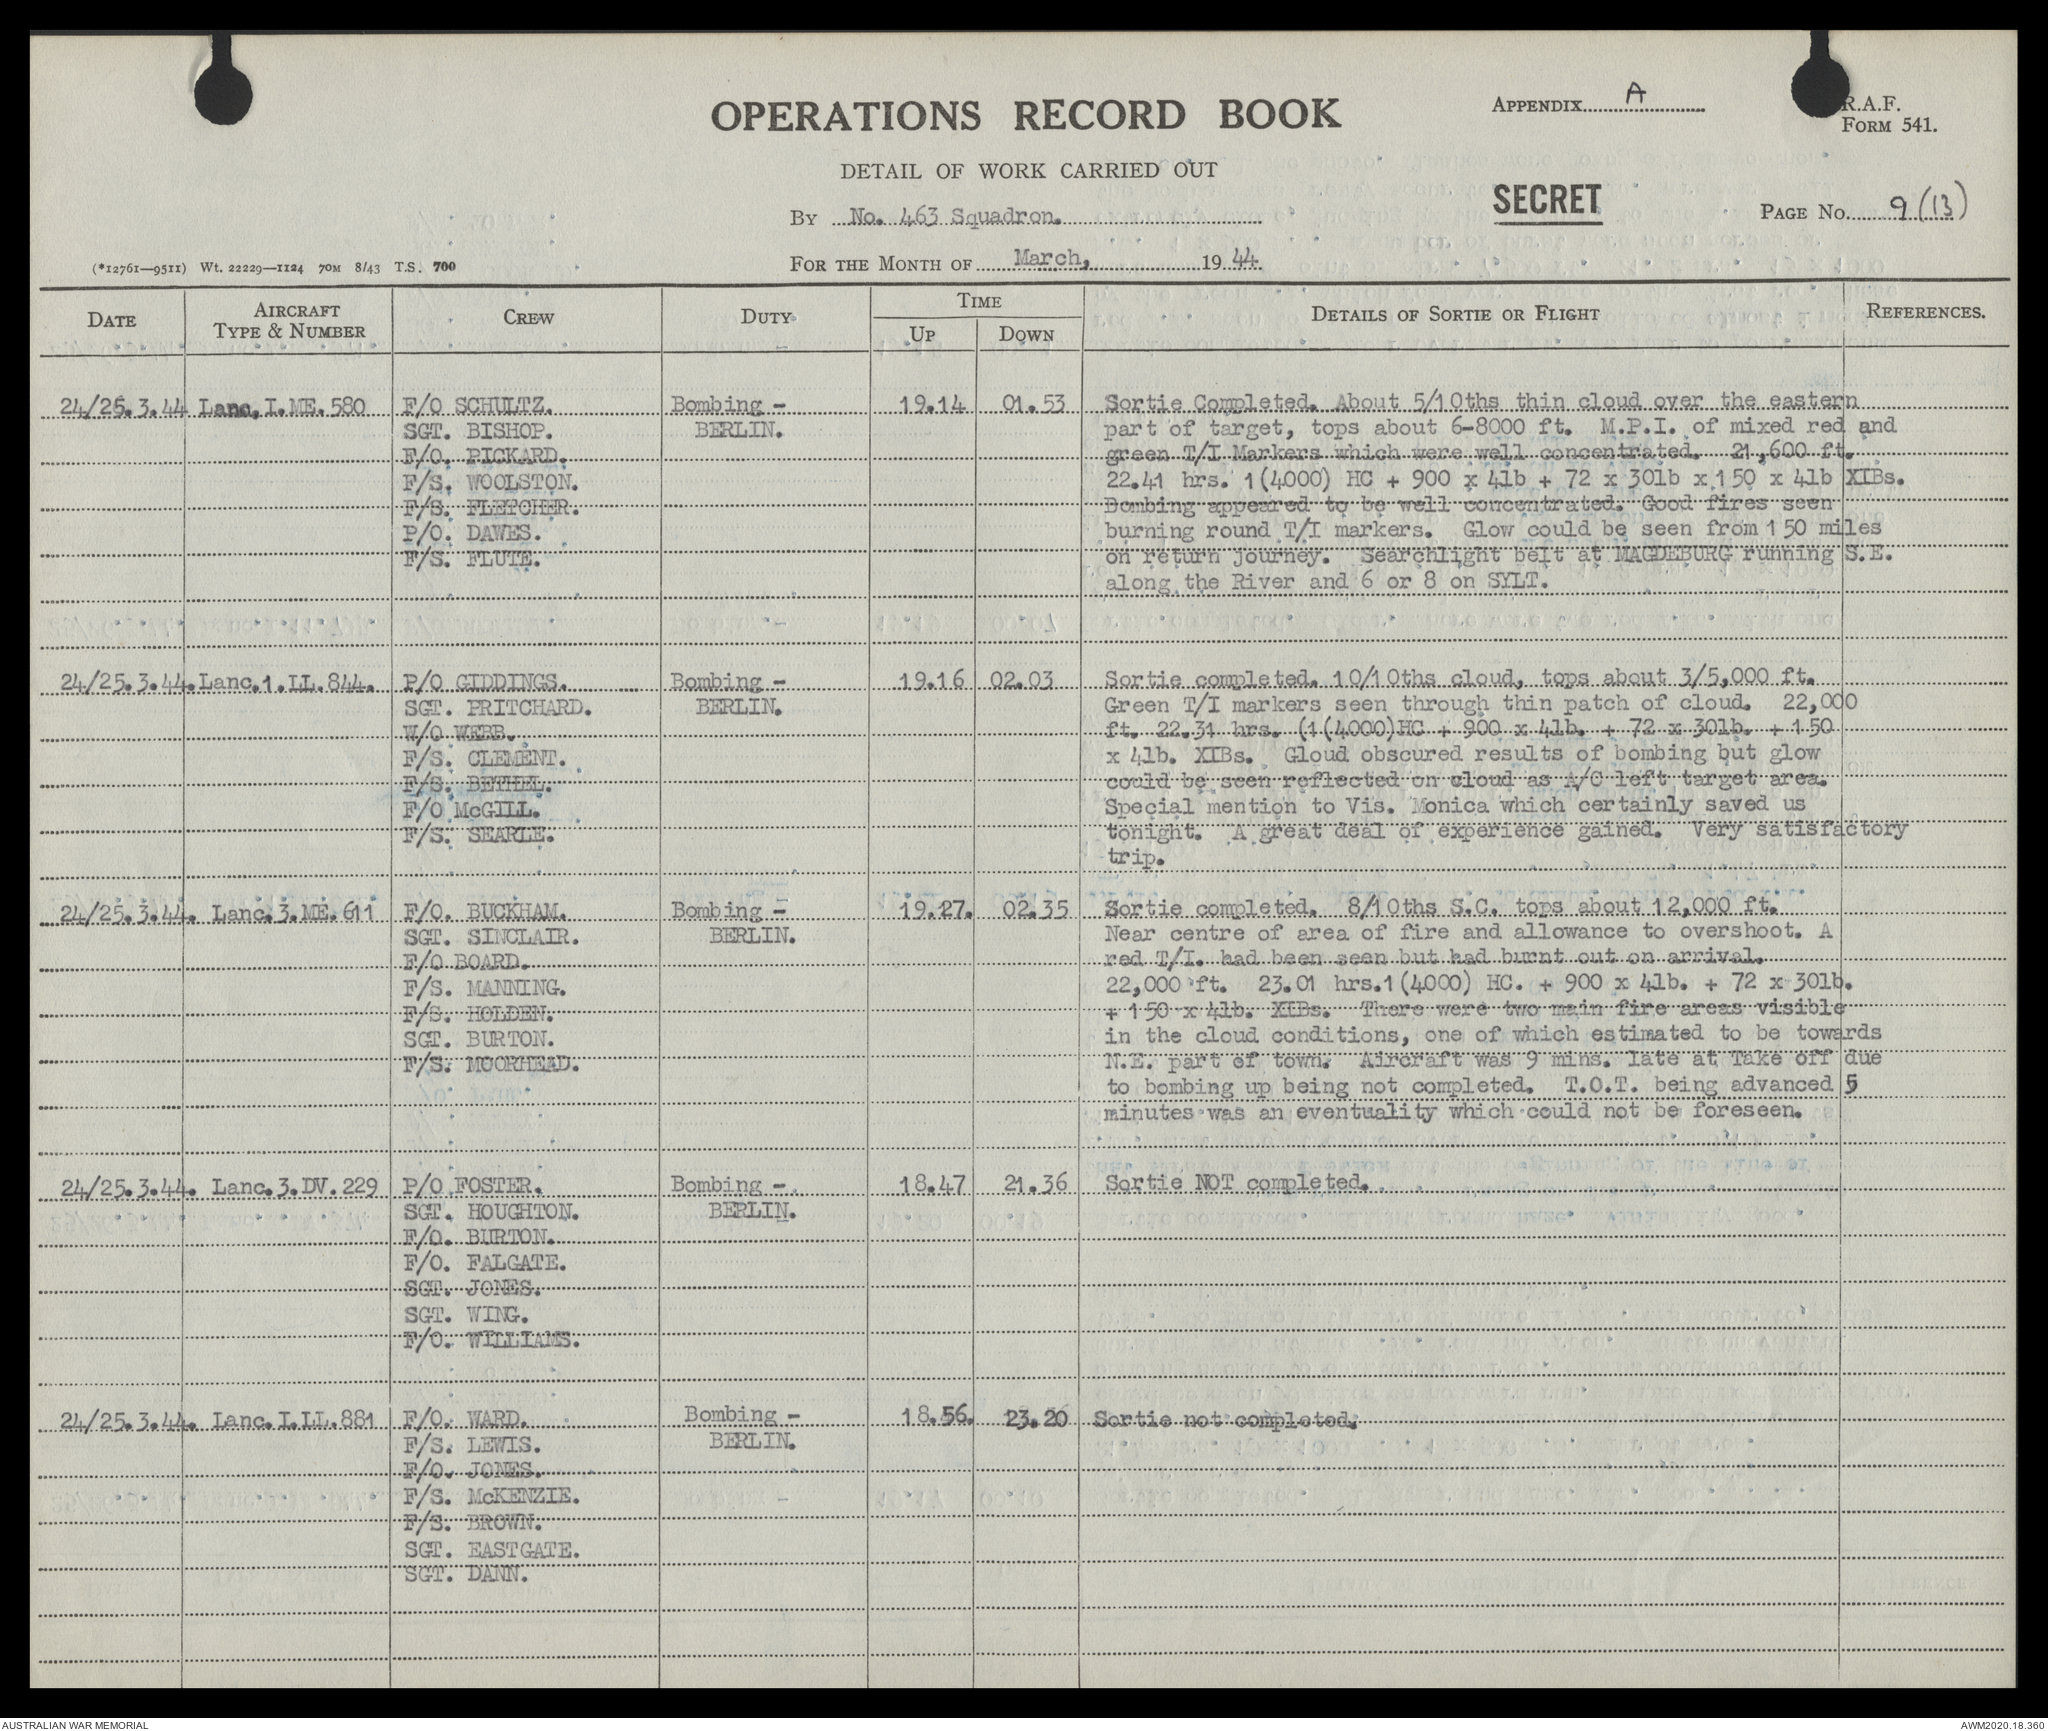 OPERATIONS RECORD BOOK
APPENDIX A
R.A.F.
FORM 541.
DETAIL OF WORK CARRIED OUT
SECRET
BY No. 463 Squadron.
PAGE No. 9 (13)
(*12761—9511) Wt. 22229—1124 70M 8/43 T.S. 700
FOR THE MONTH OF March, 1944.
DATE AIRCRAFT TYPE & NUMBER CREW DUTY TIME UP DOWN DETAILS OF SORTIE OR FLIGHT REFERENCES.
24/25.3.44 Lanc.I.ME.580 F/O SCHULTZ. Bombing - 19.14 01.53 Sortie Completed. About 5/10ths thin cloud over the eastern
SGT. BISHOP. BERLIN. part of target, tops about 6-8000 ft. M.P.I. of mixed red and
F/O. PICKARD. green T/I Markers which were well concentrated. 21,600 ft.
F/S. WOOLSTON. 22.41 hrs. 1(4000) HC + 900 x 4lb + 72 x 30lb x 150 x 4lb XIBs.
F/S. FLETCHER. Bombing appeared to be well concentrated. Good fires seen
P/O. DAWES. burning round T/I markers. Glow could be seen from 150 miles
F/S. FLUTE. on return journey. Searchlight belt at MAGDEBURG running S.E.
along the River and 6 or 8 on SYLT.
24/25.3.44. Lanc.1.LL.844. P/O GIDDINGS. Bombing - 19.16 02.03 Sortie completed. 10/10ths cloud, tops about 3/5,000 ft.
SGT. PRITCHARD. BERLIN. Green T/I markers seen through thin patch of cloud. 22,000
W/O WEBB. ft. 22.31 hrs. (1(4000)HC + 900 x 4lb. + 72 x 30lb. + 150
F/S. CLEMENT. x 4lb. XIBs. Gloud obscured results of bombing but glow
F/S. BETHEL. could be seen reflected on cloud as A/C left target area.
F/O McGILL. Special mention to Vis. Monica which certainly saved us
F/S. SEARLE. tonight. A great deal of experience gained. Very satisfactory
trip.
24/25.3.44. Lanc.3.ME.611 F/O. BUCKHAM. Bombing - 19.27. 02.35 Sortie completed. 8/10ths S.C. tops about 12,000 ft.
SGT. SINCLAIR. BERLIN. Near centre of area of fire and allowance to overshoot. A
F/O BOARD. red T/I. had been seen but had burnt out on arrival.
F/S. MANNING. 22,000 ft. 23.01 hrs.1(4000) HC. + 900 x 4lb. + 72 x 30lb.
F/S. HOLDEN. + 150 x 4lb. XIBs. There were two main fire areas visible
SGT. BURTON. in the cloud conditions, one of which estimated to be towards
F/S. MOORHEAD. N.E. part of town. Aircraft was 9 mins. late at Take off due
to bombing up being not completed. T.O.T. being advanced 5
minutes was an eventuality which could not be foreseen.
24/25.3.44. Lanc.3.DV.229 P/O FOSTER. Bombing - 18.47 21.36 Sortie NOT completed.
SGT. HOUGHTON. BERLIN.
F/O. BURTON.
F/O. FALGATE.
SGT. JONES.
SGT. WING.
F/O. WILLIAMS.
24/25.3.44. Lanc.I.LL.881 F/O. WARD. Bombing - 18.56. 23.20 Sortie not completed.
F/S. LEWIS. BERLIN.
F/O. JONES.
F/S. McKENZIE.
F/S. BROWN.
SGT. EASTGATE.
SGT. DANN.
AUSTRALIAN WAR MEMORIAL
AWM2020.18.360